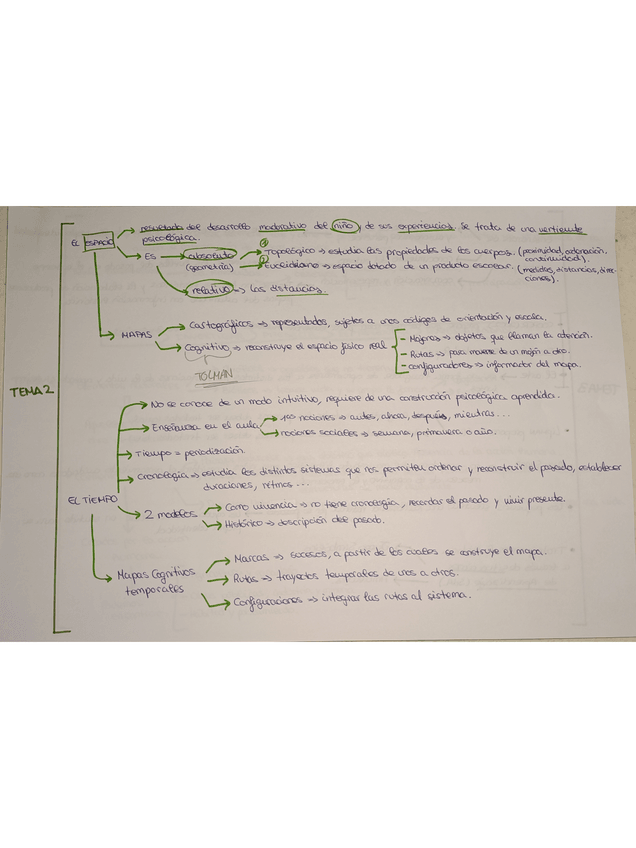 TEMA 2
EL ESPACIO → resultado del desarrollo madurativo del niño y de sus experiencias. Se trata de una vertiente
psicológica.
Es → absoluto (geometría) → ① Topológico → estudia las propiedades de los cuerpos. (proximidad, ordenación,
continuidad).
② Euclidiano → espacio dotado de un producto escalar. (medidas, distancias, direc-
ciones).
relativo → las distancias.
MAPAS → Cartográficos → representados, sujetos a unos códigos de orientación y escala.
Cognitivo → reconstruye el espacio físico real
- Mojones → objetos que llaman la atención.
- Rutas → para moverse de un mojón a otro.
- configuradores → informador del mapa.
TOLMAN
EL TIEMPO → No se conoce de un modo intuitivo, requiere de una construcción psicológica aprendida.
Enseñanza en el aula → 1as nociones → antes, ahora, después, mientras...
nociones sociales → semana, primavera o año.
Tiempo = periodización.
Cronología → estudia los distintos sistemas que nos permiten ordenar y reconstruir el pasado, establecer
duraciones, ritmos...
2 modelos → Como vivencia → no tiene cronología, recordar el pasado y vivir presente.
Histórico → descripción del pasado.
Mapas Cognitivos
temporales
Marcas → sucesos, a partir de los cuales se construye el mapa.
Rutas → trayectos temporales de unos a otros.
Configuraciones → integrar las rutas al sistema.